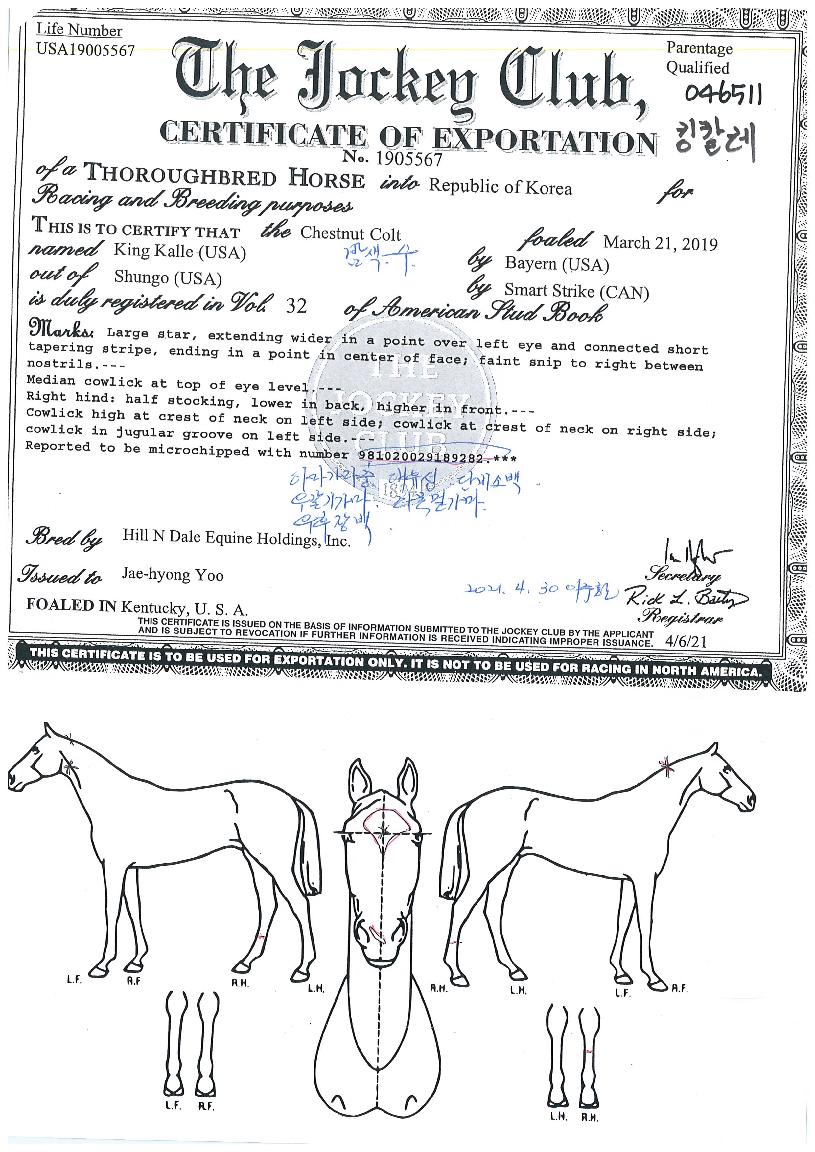 Life Number
USA19005567
The Jockey Club,
Parentage
Qualified
046511
킹칼레
CERTIFICATE OF EXPORTATION
No. 1905567
of a THOROUGHBRED HORSE into Republic of Korea for
Racing and Breeding purposes
THIS IS TO CERTIFY THAT the Chestnut Colt foaled March 21, 2019
named King Kalle (USA) by Bayern (USA)
out of Shungo (USA) by Smart Strike (CAN)
is duly registered in Vol. 32 of American Stud Book
Marks: Large star, extending wider in a point over left eye and connected short
tapering stripe, ending in a point in center of face; faint snip to right between
nostrils.---
Median cowlick at top of eye level.---
Right hind: half stocking, lower in back, higher in front.---
Cowlick high at crest of neck on left side; cowlick at crest of neck on right side;
cowlick in jugular groove on left side.---
Reported to be microchipped with number 981020029189282.***
THE
JOCKEY
CLUB
Bred by Hill N Dale Equine Holdings, Inc.
Issued to Jae-hyong Yoo
2021. 4. 30
Secretary
Registrar
FOALED IN Kentucky, U. S. A.
THIS CERTIFICATE IS ISSUED ON THE BASIS OF INFORMATION SUBMITTED TO THE JOCKEY CLUB BY THE APPLICANT
AND IS SUBJECT TO REVOCATION IF FURTHER INFORMATION IS RECEIVED INDICATING IMPROPER ISSUANCE. 4/6/21
THIS CERTIFICATE IS TO BE USED FOR EXPORTATION ONLY. IT IS NOT TO BE USED FOR RACING IN NORTH AMERICA.
L.F. R.F R.H. L.H. R.H. L.H. L.F. R.F.
L.F. R.F. L.H. R.H.